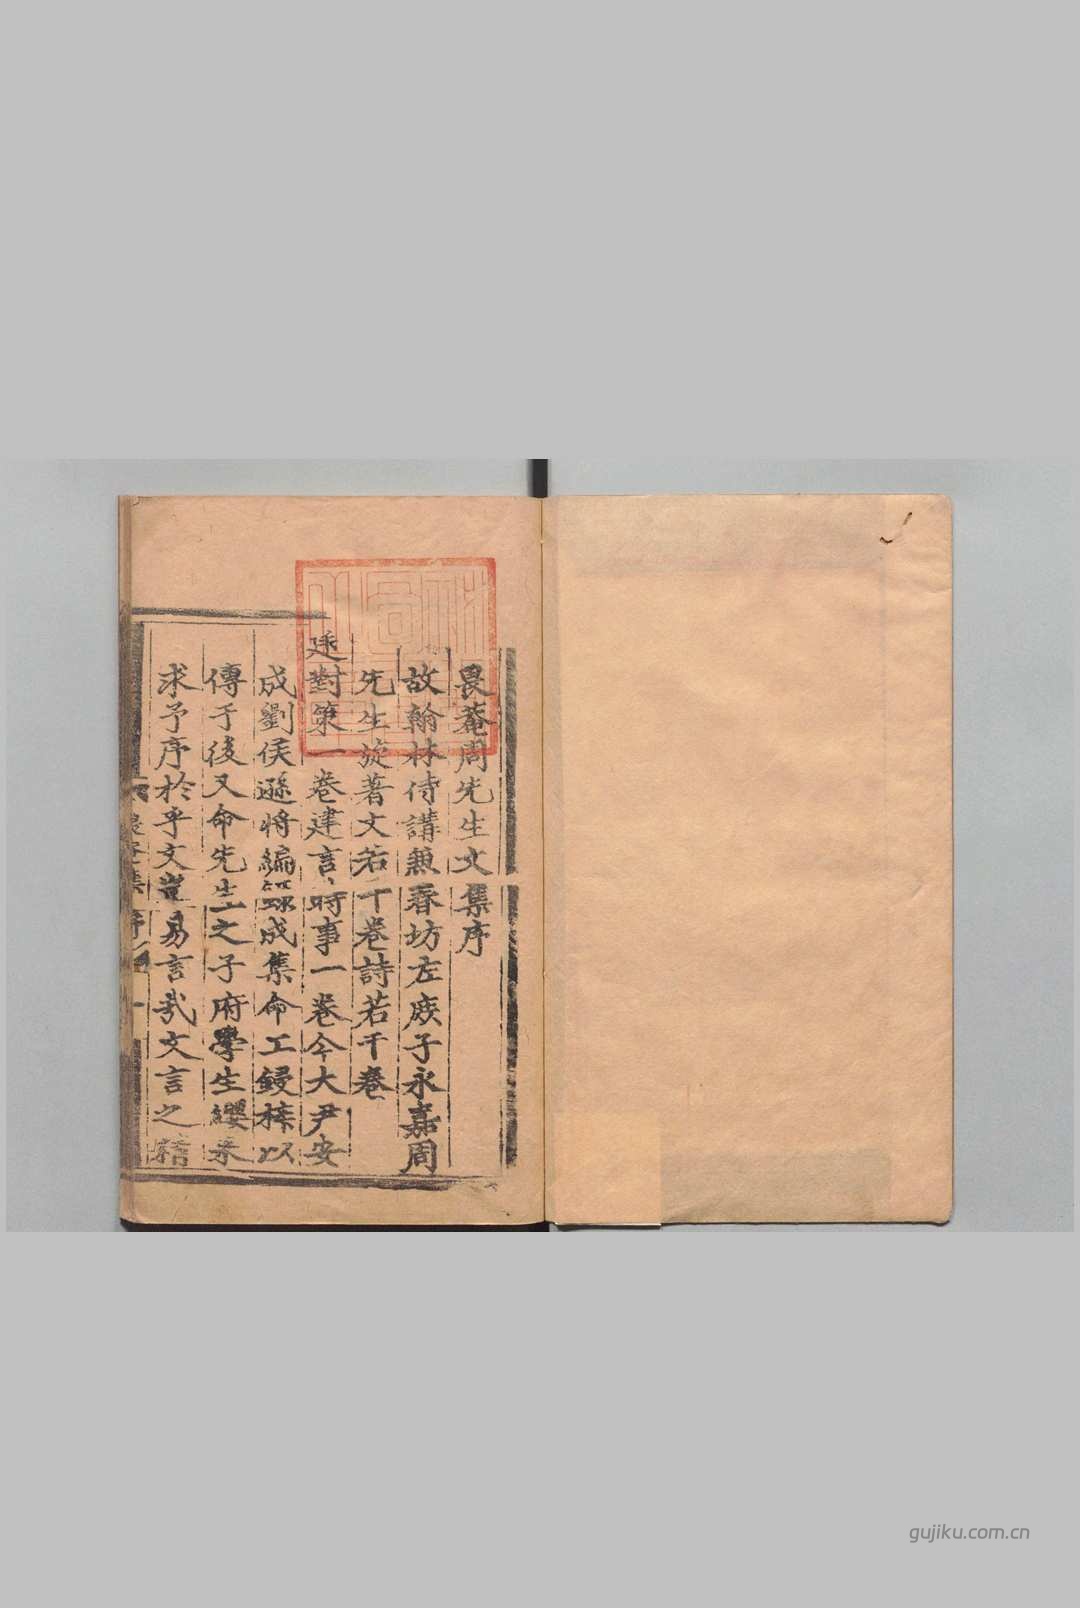 畏菴周先生文集序
故翰林侍講兼春坊左庻子永嘉周
先生旋著文若干卷詩若干卷
廷對策一卷建言時事一卷今大尹安
成劉侯遜將編録成集命工鋟梓以
傳于後又命先生之子府學生纓來
求予序於乎文豈易言哉文言之精
畏菴集序
一
gujiku.com.cn